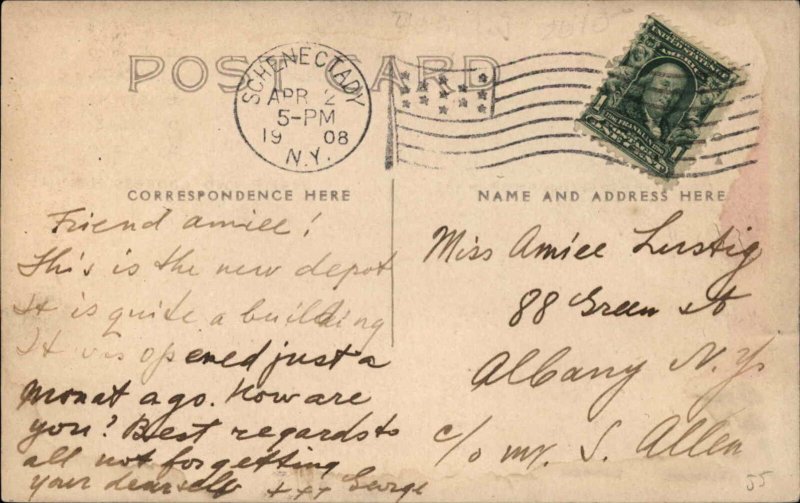 POST CARD
SCHENECTADY
APR 2
5-PM
19 08
N.Y.
UNITED STATES OF AMERICA
1 1
CORRESPONDENCE HERE
NAME AND ADDRESS HERE
Friend Amiee!
This is the new depot
It is quite a building
It was opened just a
monat ago. How are
you? Best regards to
all not forgetting
your dearself + x x George
Miss Amiee Lustig
88 Green st
Albany N.Y.
c/o Mr. S. Allen
55